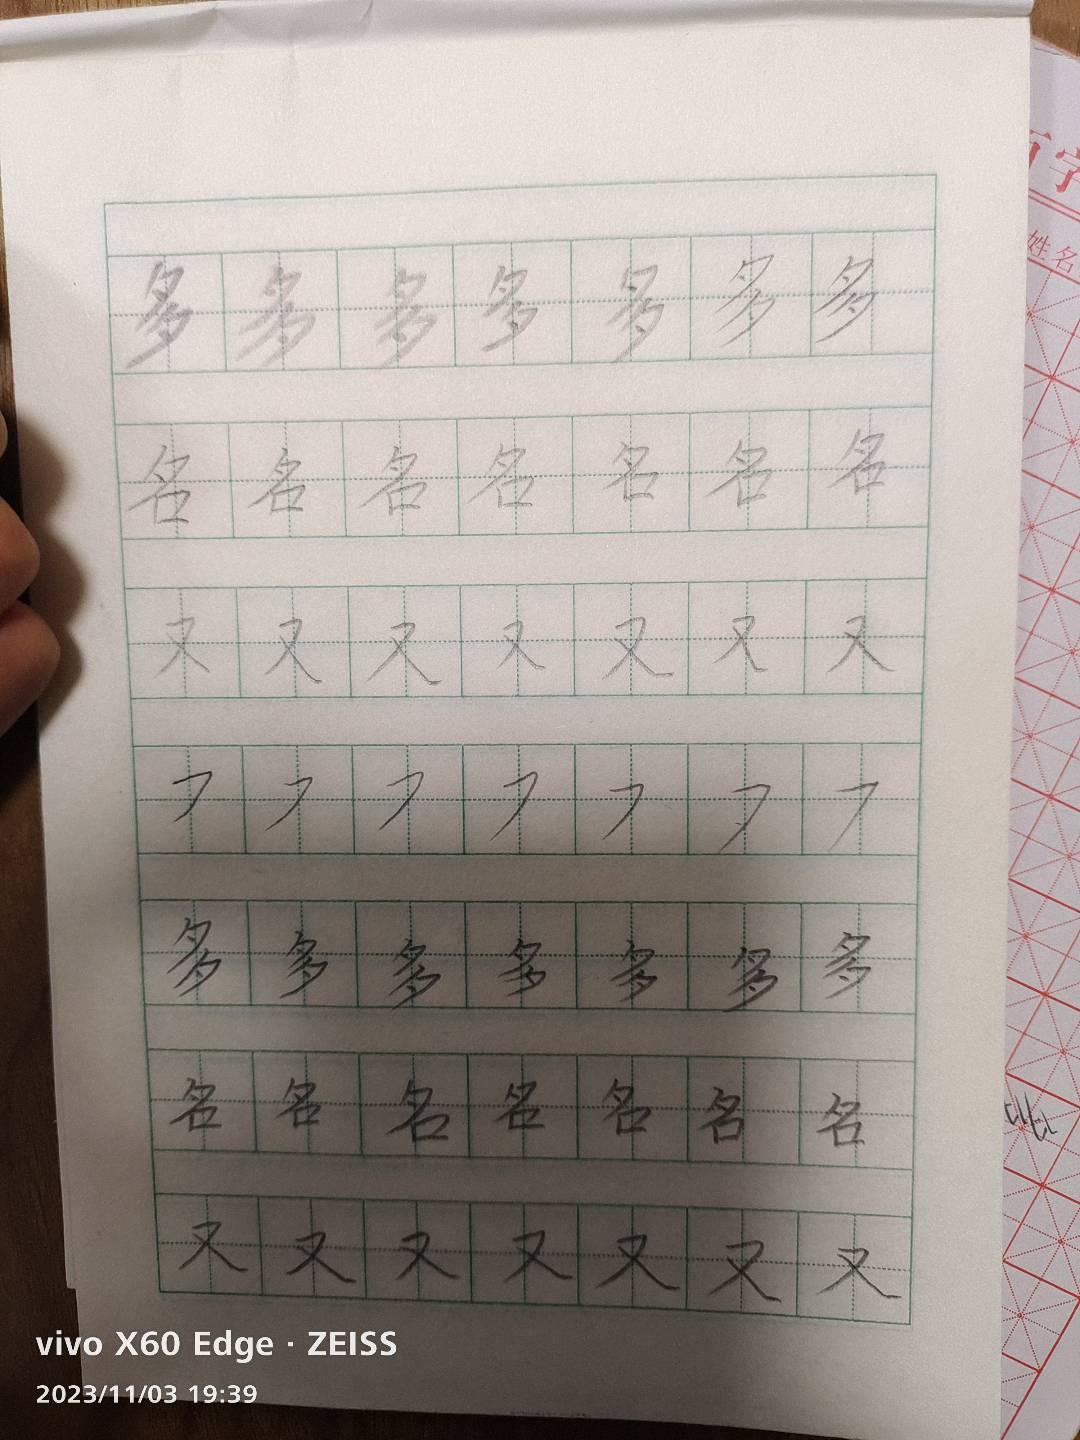 多多多多多多多
名名名名名名名
又又又又又又又
フフフフフフフ
多多多多多多多
名名名名名名名
又又又又又又又
姓名
vivo X60 Edge · ZEISS
2023/11/03 19:39